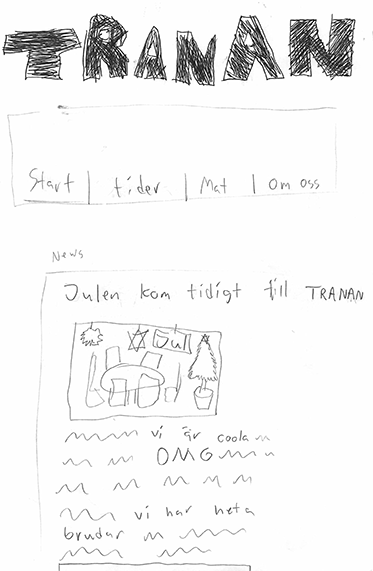 TRANAN
Start | tider | Mat | Om oss
News
Julen kom tidigt till TRANAN
Jul
vi är coola
OMG
vi har heta
brudar